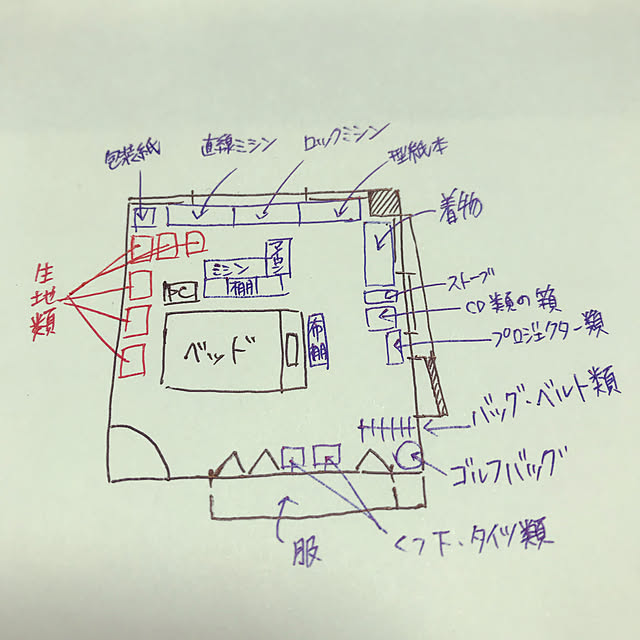 包装紙
直線ミシン
ロックミシン
型紙本
着物
生地類
ミシン
アイロン
棚
PC
ストーブ
CD類の箱
プロジェクター類
ベッド
布棚
バッグ・ベルト類
ゴルフバッグ
服
くつ下・タイツ類